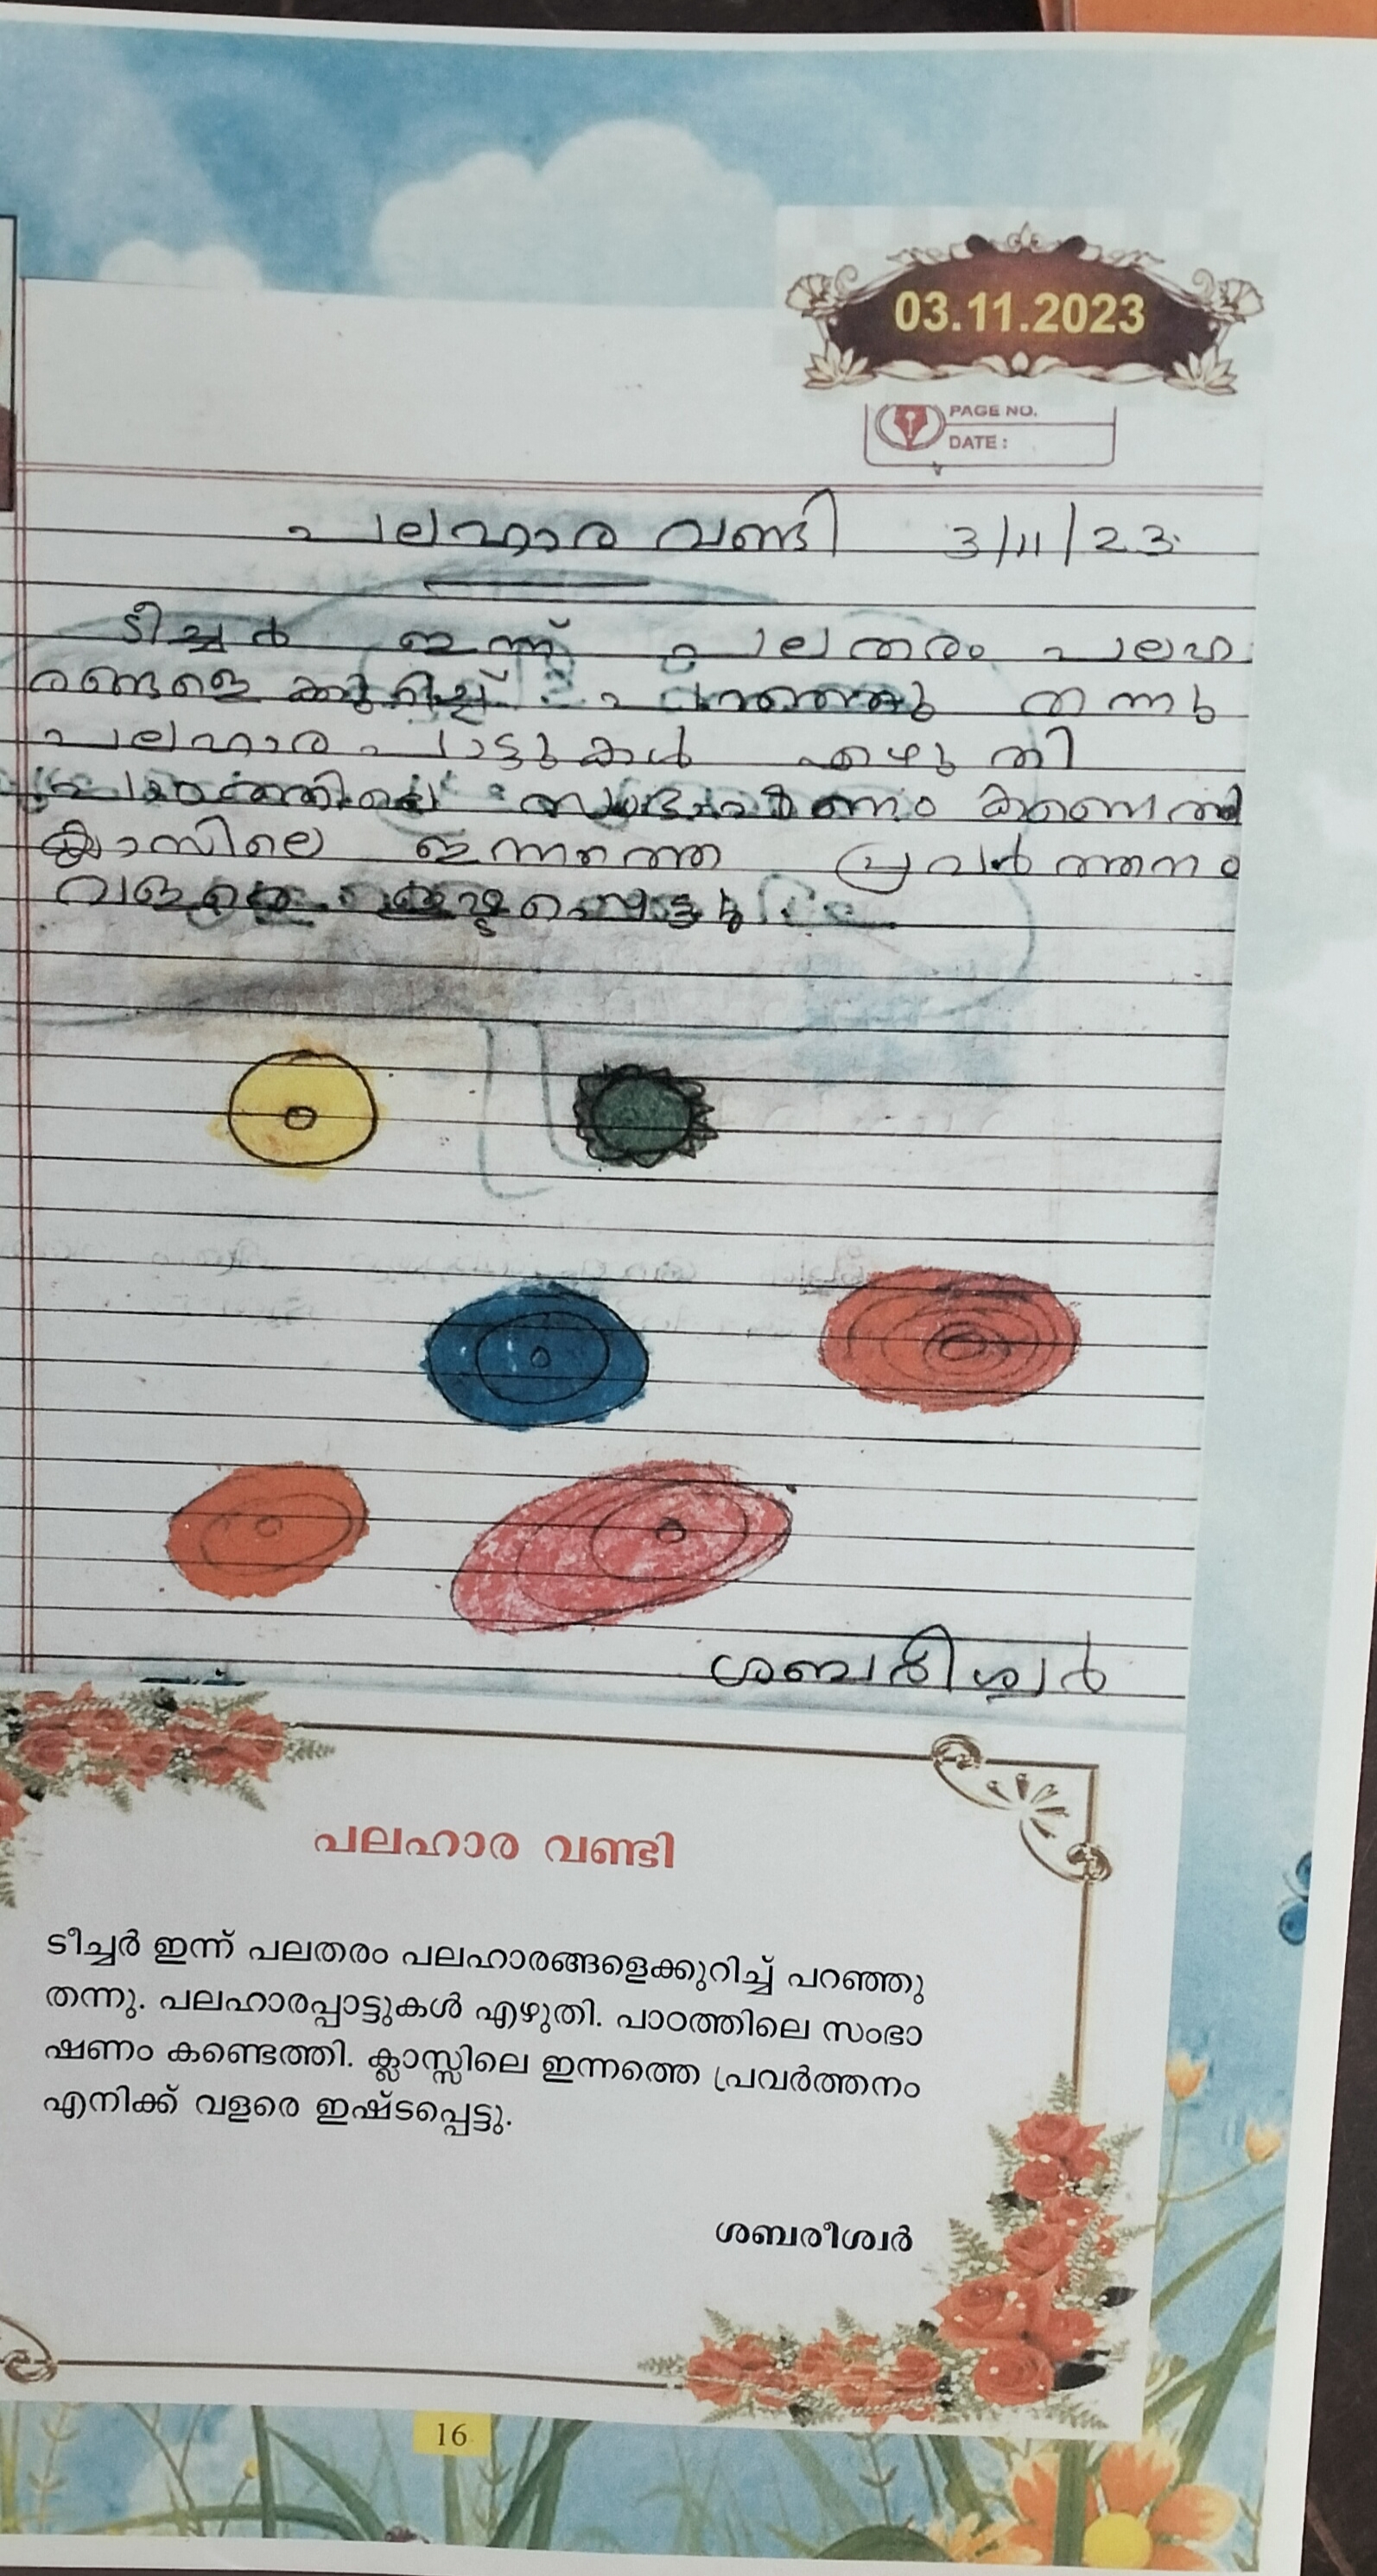 03.11.2023
PAGE NO.
DATE :
പലഹാര വണ്ടി 3/11/23.
ടീച്ചർ ഇന്ന് പലതരം പലഹ
രങ്ങളെ ക്കുറിച്ച് പറഞ്ഞു തന്നു
പലഹാര പാട്ടുകൾ എഴുതി
കണ്ടെത്തി
ക്ലാസിലെ ഇന്നത്തെ പ്രവർത്തനം
വളരെ
ശബരീശ്വർ
പലഹാര വണ്ടി
ടീച്ചർ ഇന്ന് പലതരം പലഹാരങ്ങളെക്കുറിച്ച് പറഞ്ഞു
തന്നു. പലഹാരപ്പാട്ടുകൾ എഴുതി. പാഠത്തിലെ സംഭാ
ഷണം കണ്ടെത്തി. ക്ലാസ്സിലെ ഇന്നത്തെ പ്രവർത്തനം
എനിക്ക് വളരെ ഇഷ്ടപ്പെട്ടു.
ശബരീശ്വർ
16